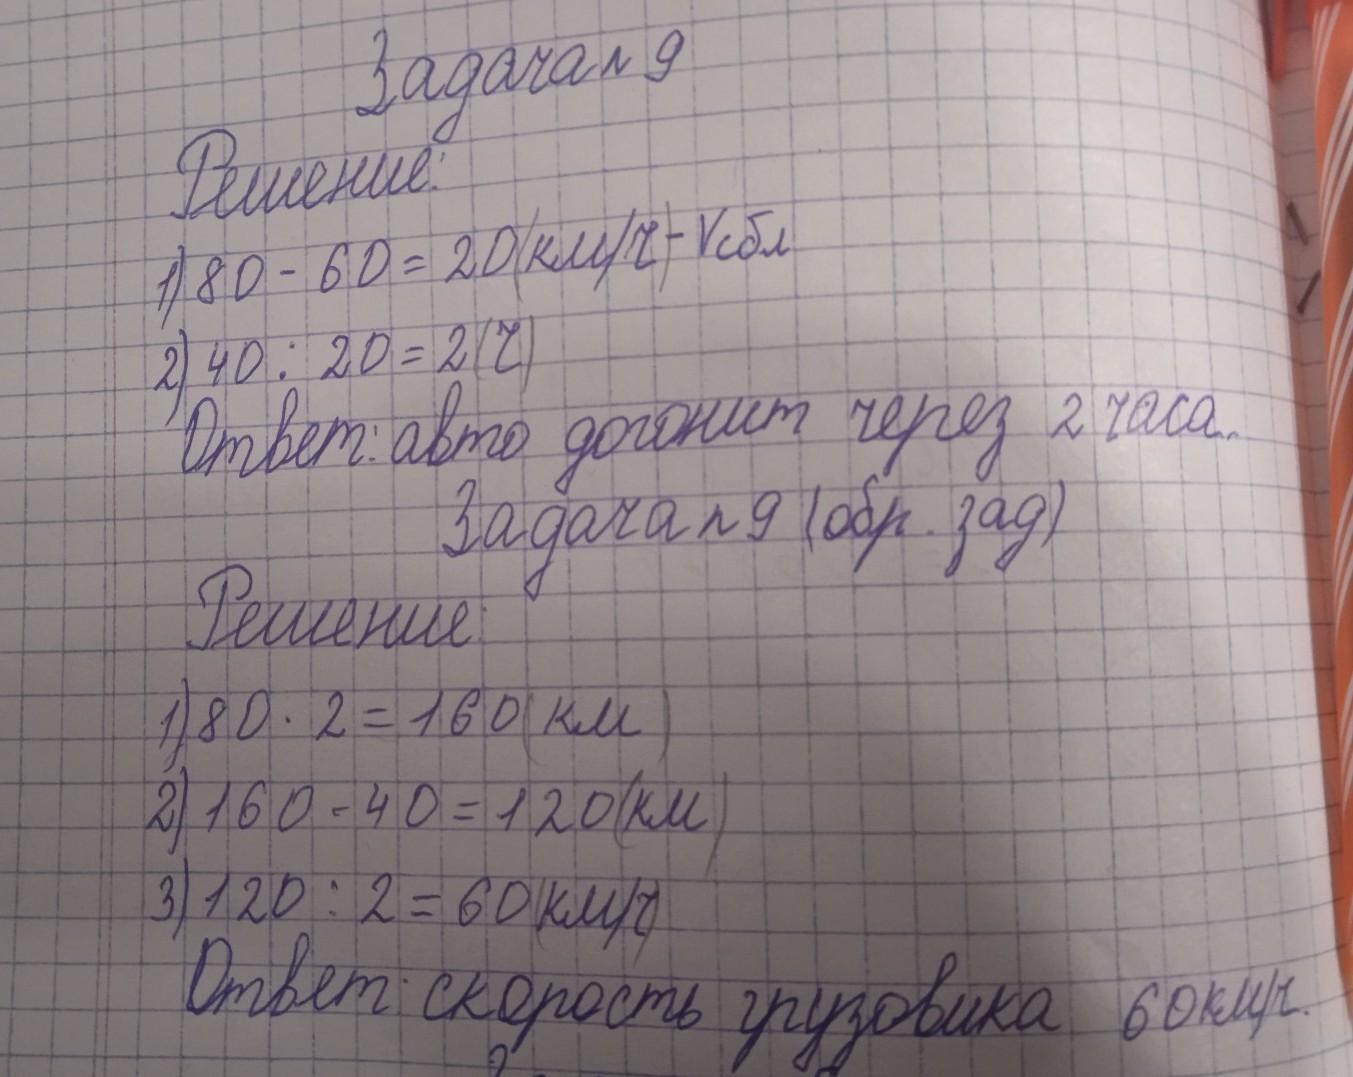 Задача n 9
Решение:
1) 80 - 60 = 20 (км/ч) - Vсбл
2) 40 : 20 = 2 (ч)
Ответ: авто догонит через 2 часа.
Задача n 9 (обр. зад)
Решение:
1) 80 · 2 = 160 (км)
2) 160 - 40 = 120 (км)
3) 120 : 2 = 60 (км/ч)
Ответ: скорость грузовика 60 км/ч.